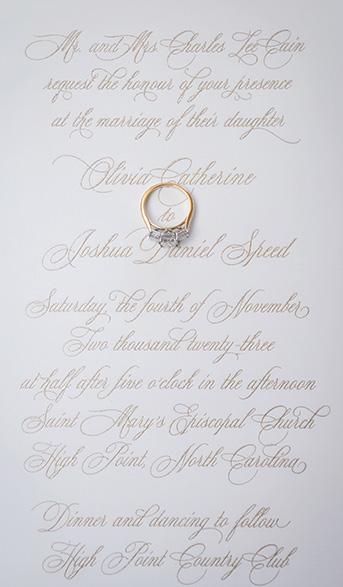 Mr. and Mrs. Charles Lee Cain
request the honour of your presence
at the marriage of their daughter
Olivia Catherine
to
Joshua Daniel Speed
Saturday the fourth of November
Two thousand twenty-three
at half after five o'clock in the afternoon
Saint Mary's Episcopal Church
High Point, North Carolina
Dinner and dancing to follow
High Point Country Club